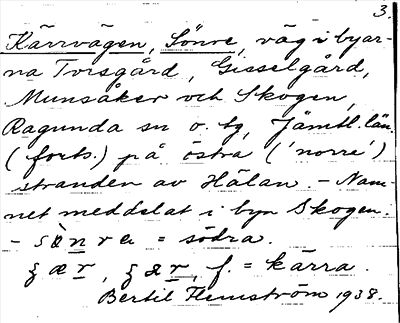 3.
Kärrvägen, Sönre, väg i byar-
na Torsgård, Gisselgård,
Munsåker och Skogen,
Ragunda sn o. tg, Jämtl. län.
(forts.) på östra ('norre')
stranden av Hälan. – Nam-
net meddelat i byn Skogen.
– = södra.
f. = kärra.
Bertil Flemström 1938.